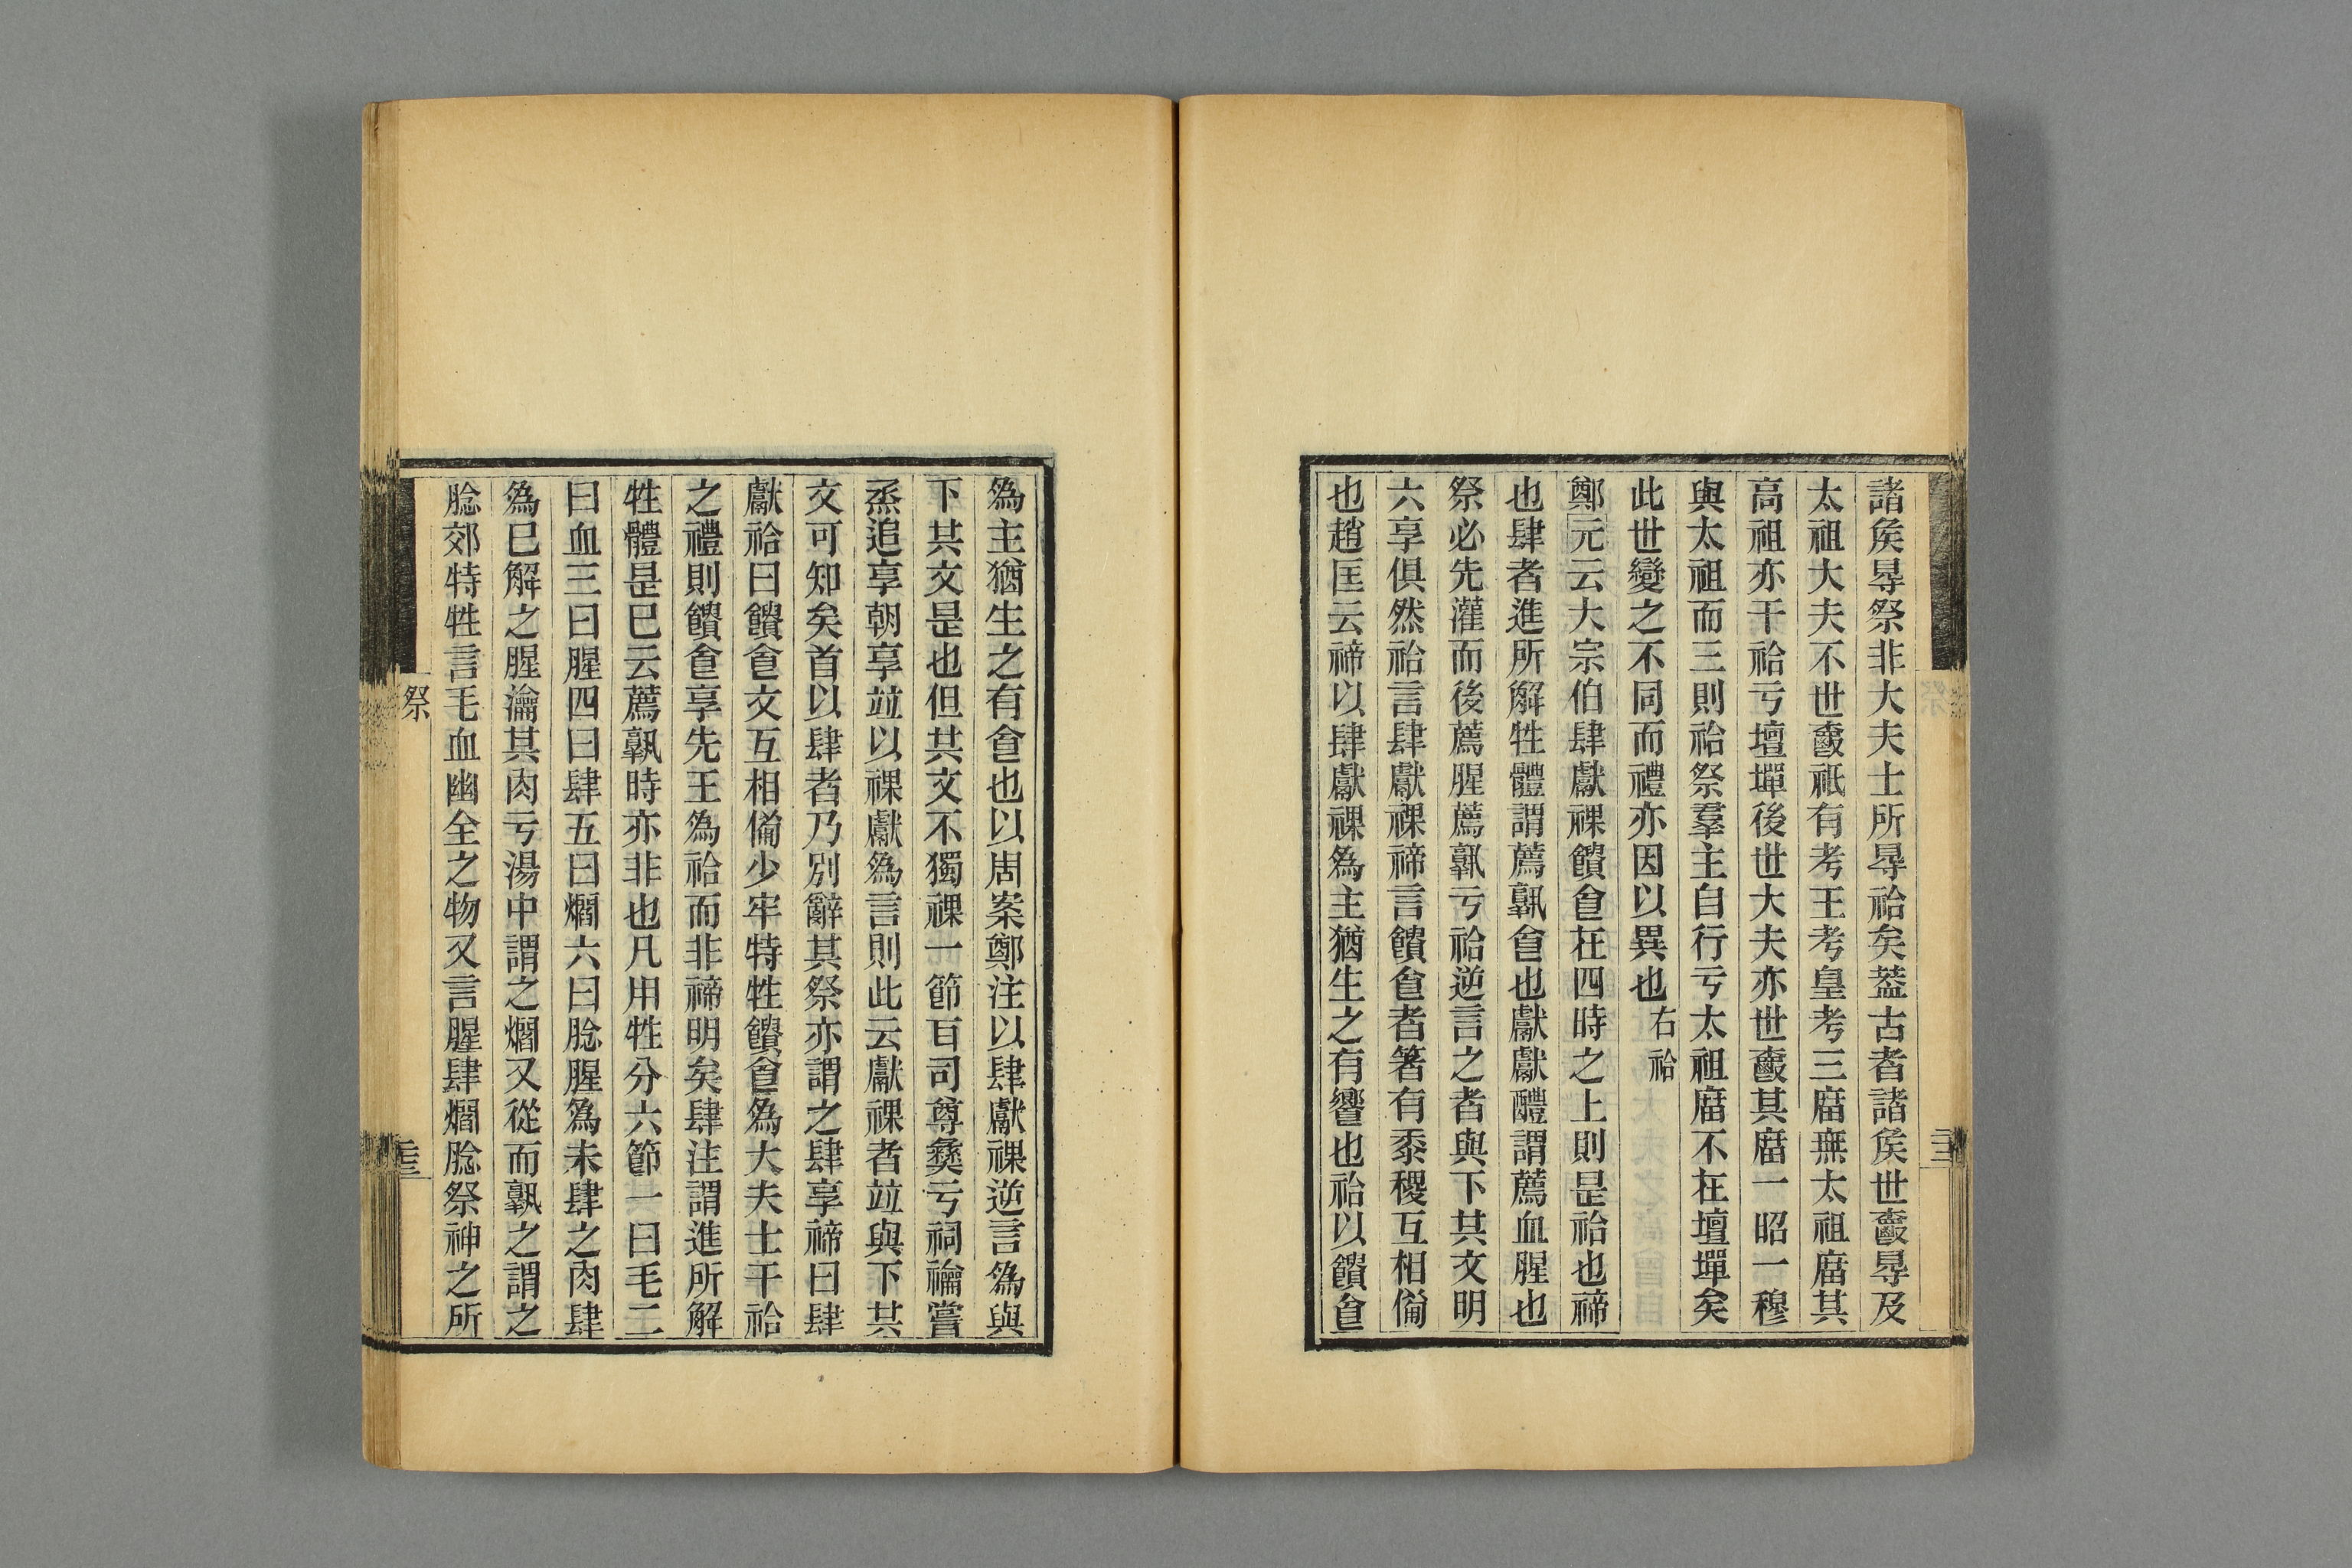 諸矦㝵祭非大夫士所㝵祫矣葢古者諸矦世䘮㝵及
太祖大夫不世䘮祇有考王考皇考三庿無太祖庿其
高祖亦干祫亏壇墠後世大夫亦世䘮其庿一昭一穆
與太祖而三則祫祭羣主自行亏太祖庿不在壇墠矣
此世變之不同而禮亦因以異也右祫
鄭元云大宗伯肆獻祼饋㑹在四時之上則是祫也禘
也肆者進所解牲體謂薦孰㑹也獻獻醴謂薦血腥也
祭必先灌而後薦腥薦孰亏祫逆言之者與下其文明
六享俱然祫言肆獻祼禘言饋㑹者箸有黍稷互相僃
也趙匡云禘以肆獻祼爲主猶生之有饗也祫以饋㑹
爲主猶生之有㑹也以周案鄭注以肆獻祼逆言爲與
下其文是也但其文不獨祼一節百司尊彝亏祠禴嘗
烝追享朝享竝以祼獻爲言則此云獻祼者竝與下其
文可知矣首以肆者乃別辭其祭亦謂之肆享禘曰肆
獻祫曰饋㑹文互相僃少牢特牲饋㑹爲大夫士干祫
之禮則饋㑹享先王爲祫而非禘明矣肆注謂進所解
牲體是巳云薦孰時亦非也凡用牲分六節一曰毛二
曰血三曰腥四曰肆五曰爓六曰腍腥爲未肆之肉肆
爲巳解之腥瀹其肉亏湯中謂之爓又從而孰之謂之
腍郊特牲言毛血幽全之物又言腥肆爓腍祭神之所
祭